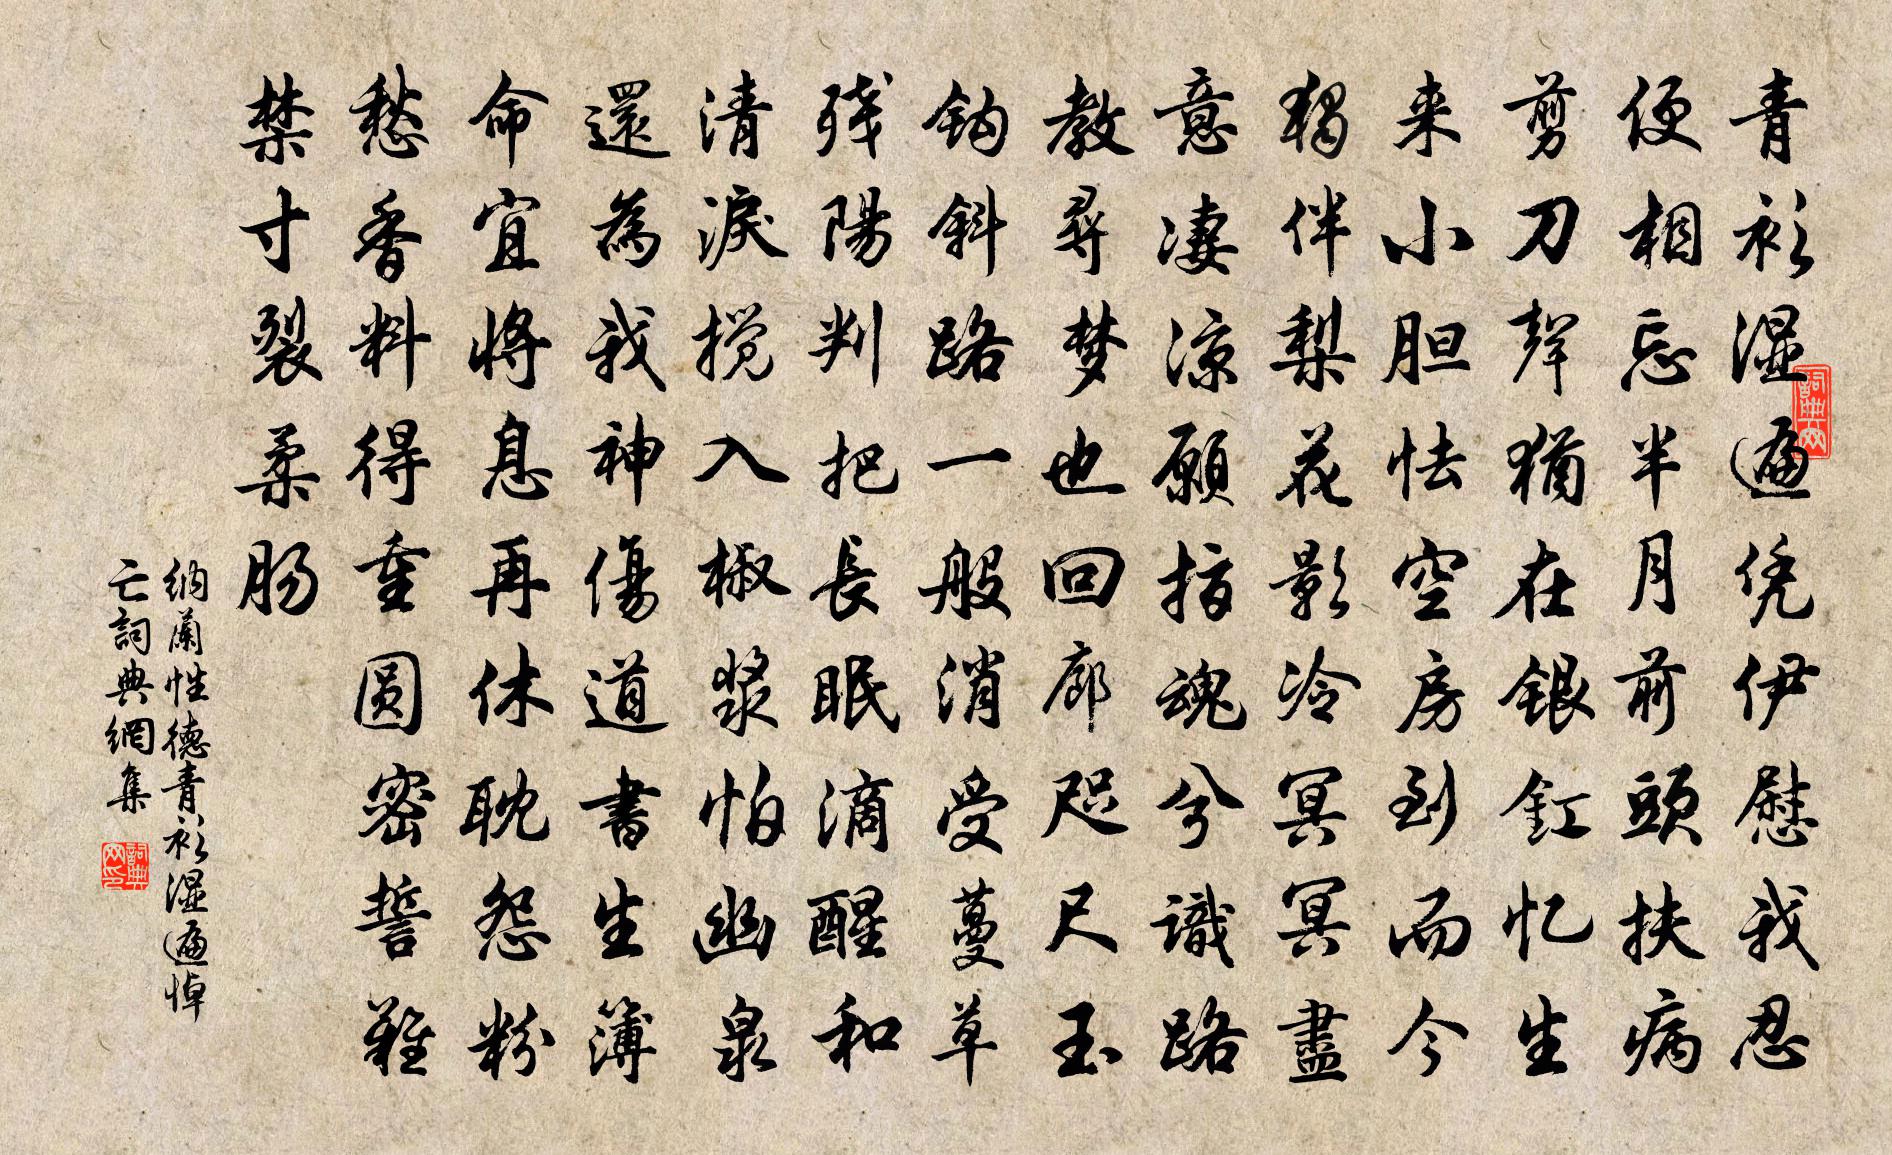 青衫湿遍凭伊慰我忍
便相忘半月前頭扶病
剪刀聲猶在銀釭忆生
来小胆怯空房到而今
獨伴梨花影冷冥冥盡
意淒涼願指魂兮識路
教尋梦也回廊咫尺玉
鈎斜路一般消受蔓草
残陽判把長眠滴醒和
清淚搅入椒漿怕幽泉
還為我神傷道書生簿
命宜將息再休耽怨粉
愁香料得重圆密誓難
禁寸裂柔肠
納蘭性德青衫湿遍悼
亡詞典網集